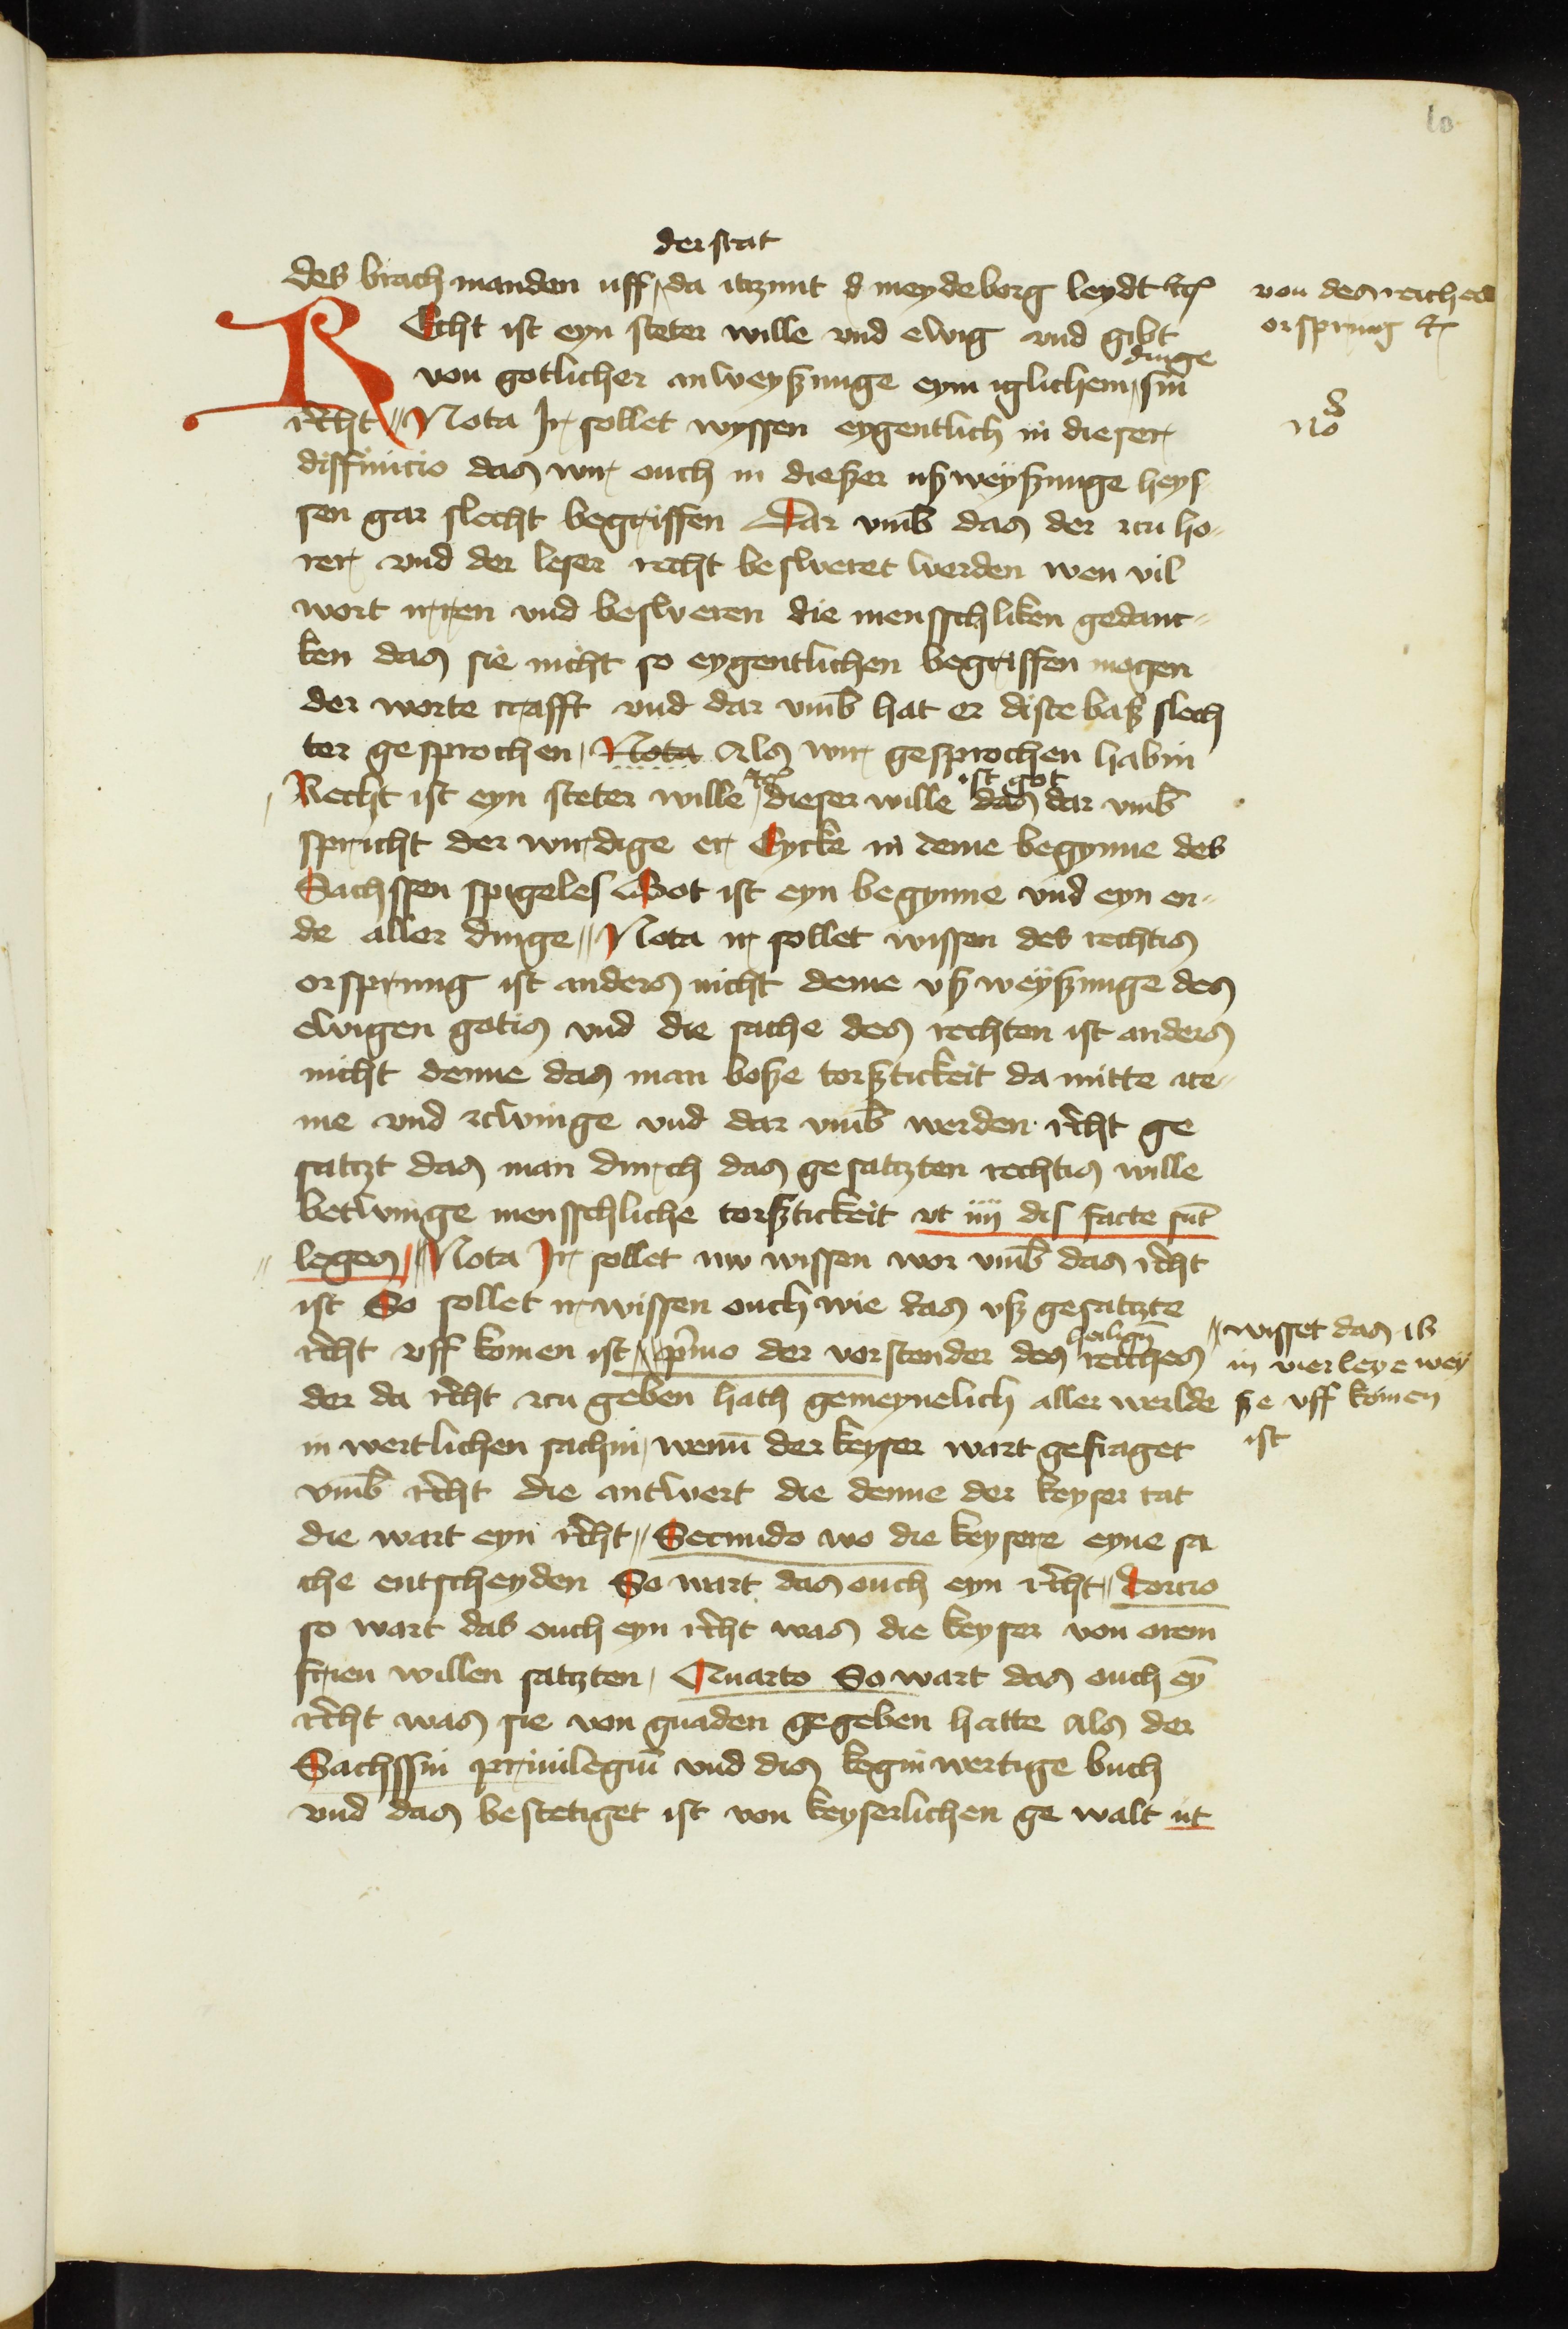 10
der stat
des brach manden uff, da itzunt d meydeborg leydt etc
von des reiches
orsprung etc
REcht ist eyn steter wille vnd ewig vnd gibt
dinge
von gotlicher anweyßunge eym iglichem, sin
recht // Nota Jr sollet wyssen eygentlich in dieser
No
diffinicio das wir ouch in dießer ußweyßunge heys
sen gar slecht begriffen Dar vmb das der zcu ho-
rer vnd der leser recht besweret werden wen vil
wort irren vnd besweren die menschliken gedanc-
ken das sie nicht so eygentlichen begriffen mogen
der worte crafft vnd dar vmb hat er diste baß slech
ter gesprochen, Nota Als wir gesprochen habin
etc ist got
Recht ist eyn steter wille, dieser wille das dar vmb
spricht der wirdige er Eycke in deme begynne des
Sachssen spigeles Got ist eyn begynne vnd eyn en-
de aller dinge // Nota ir sollet wissen des rechtis
orsprung ist anders nicht denne vßweyßunge des
ewigen gotis vnd die sache des rechten ist anders
nicht denne das man boße torßtickeit da mitte cze-
me vnd zcwinge vnd dar vmb werden recht ge
satczt das man durch das gesatczten rechtis wille
betwinge menschliche torßtickeit vt iiij dis facte sunt
leges // Nota Jr sollet nw wissen wor vmb das recht
ist So sollet ir wissen ouch wie das vß gesatczte
heiligen
recht vff komen ist // primo der vorstender des reiches
// wisset das is
in vierleye wey
ße vff komen
ist
der da recht zcu geben hath gemeynelich aller werlde
in wertlichen sachin, wenn der keyser wart gefraget
vmb recht die antwert die denne der keyser tat
die wart eyn recht // Secundo wo die keysere eyne sa
che entscheyden So wart das ouch eyn recht // Tercio
so wart das ouch eyn recht was die keyser von orem
frien willen satczten, Quarto So wart das ouch eyn
recht was sie von gnaden gegeben hatte als der
Sachssin priuilegium vnd dis keginwertige buch
vnd das bestetiget ist von keyserlichen ge walt ut